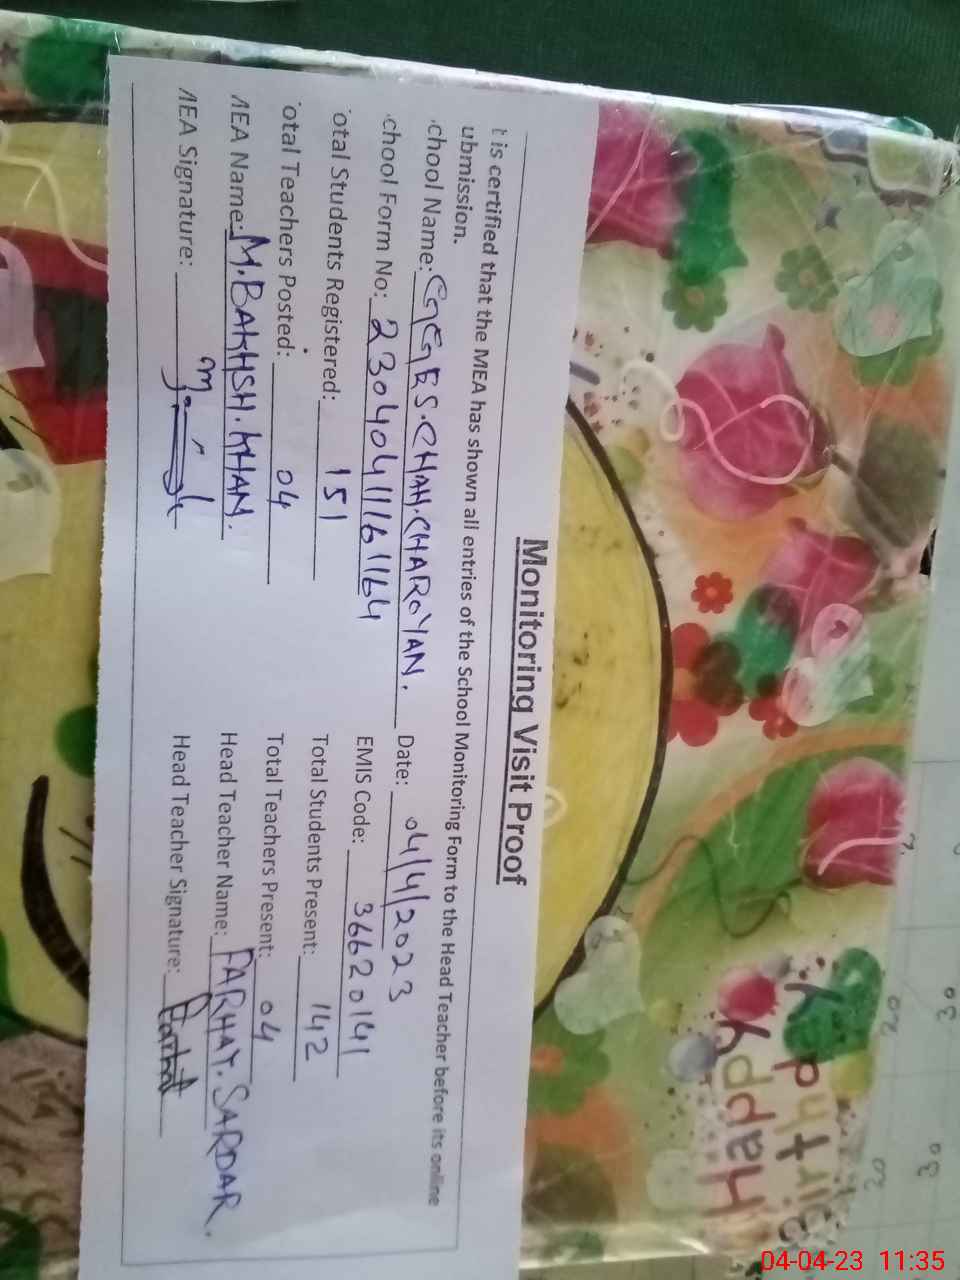 Monitoring Visit Proof
t is certified that the MEA has shown all entries of the School Monitoring Form to the Head Teacher before its online
ubmission.
chool Name: GGES.CHAH.CHAROYAN. Date: 04/4/2023
chool Form No: 23040411161164 EMIS Code: 36620141
otal Students Registered: 151 Total Students Present: 142
otal Teachers Posted: 04 Total Teachers Present: 04
MEA Name: M.BAKHSH.KHAN. Head Teacher Name: FARHAT.SARDAR.
MEA Signature: Head Teacher Signature: Farhat
Happy
Birthday
20
30
20
30
04-04-23 11:35